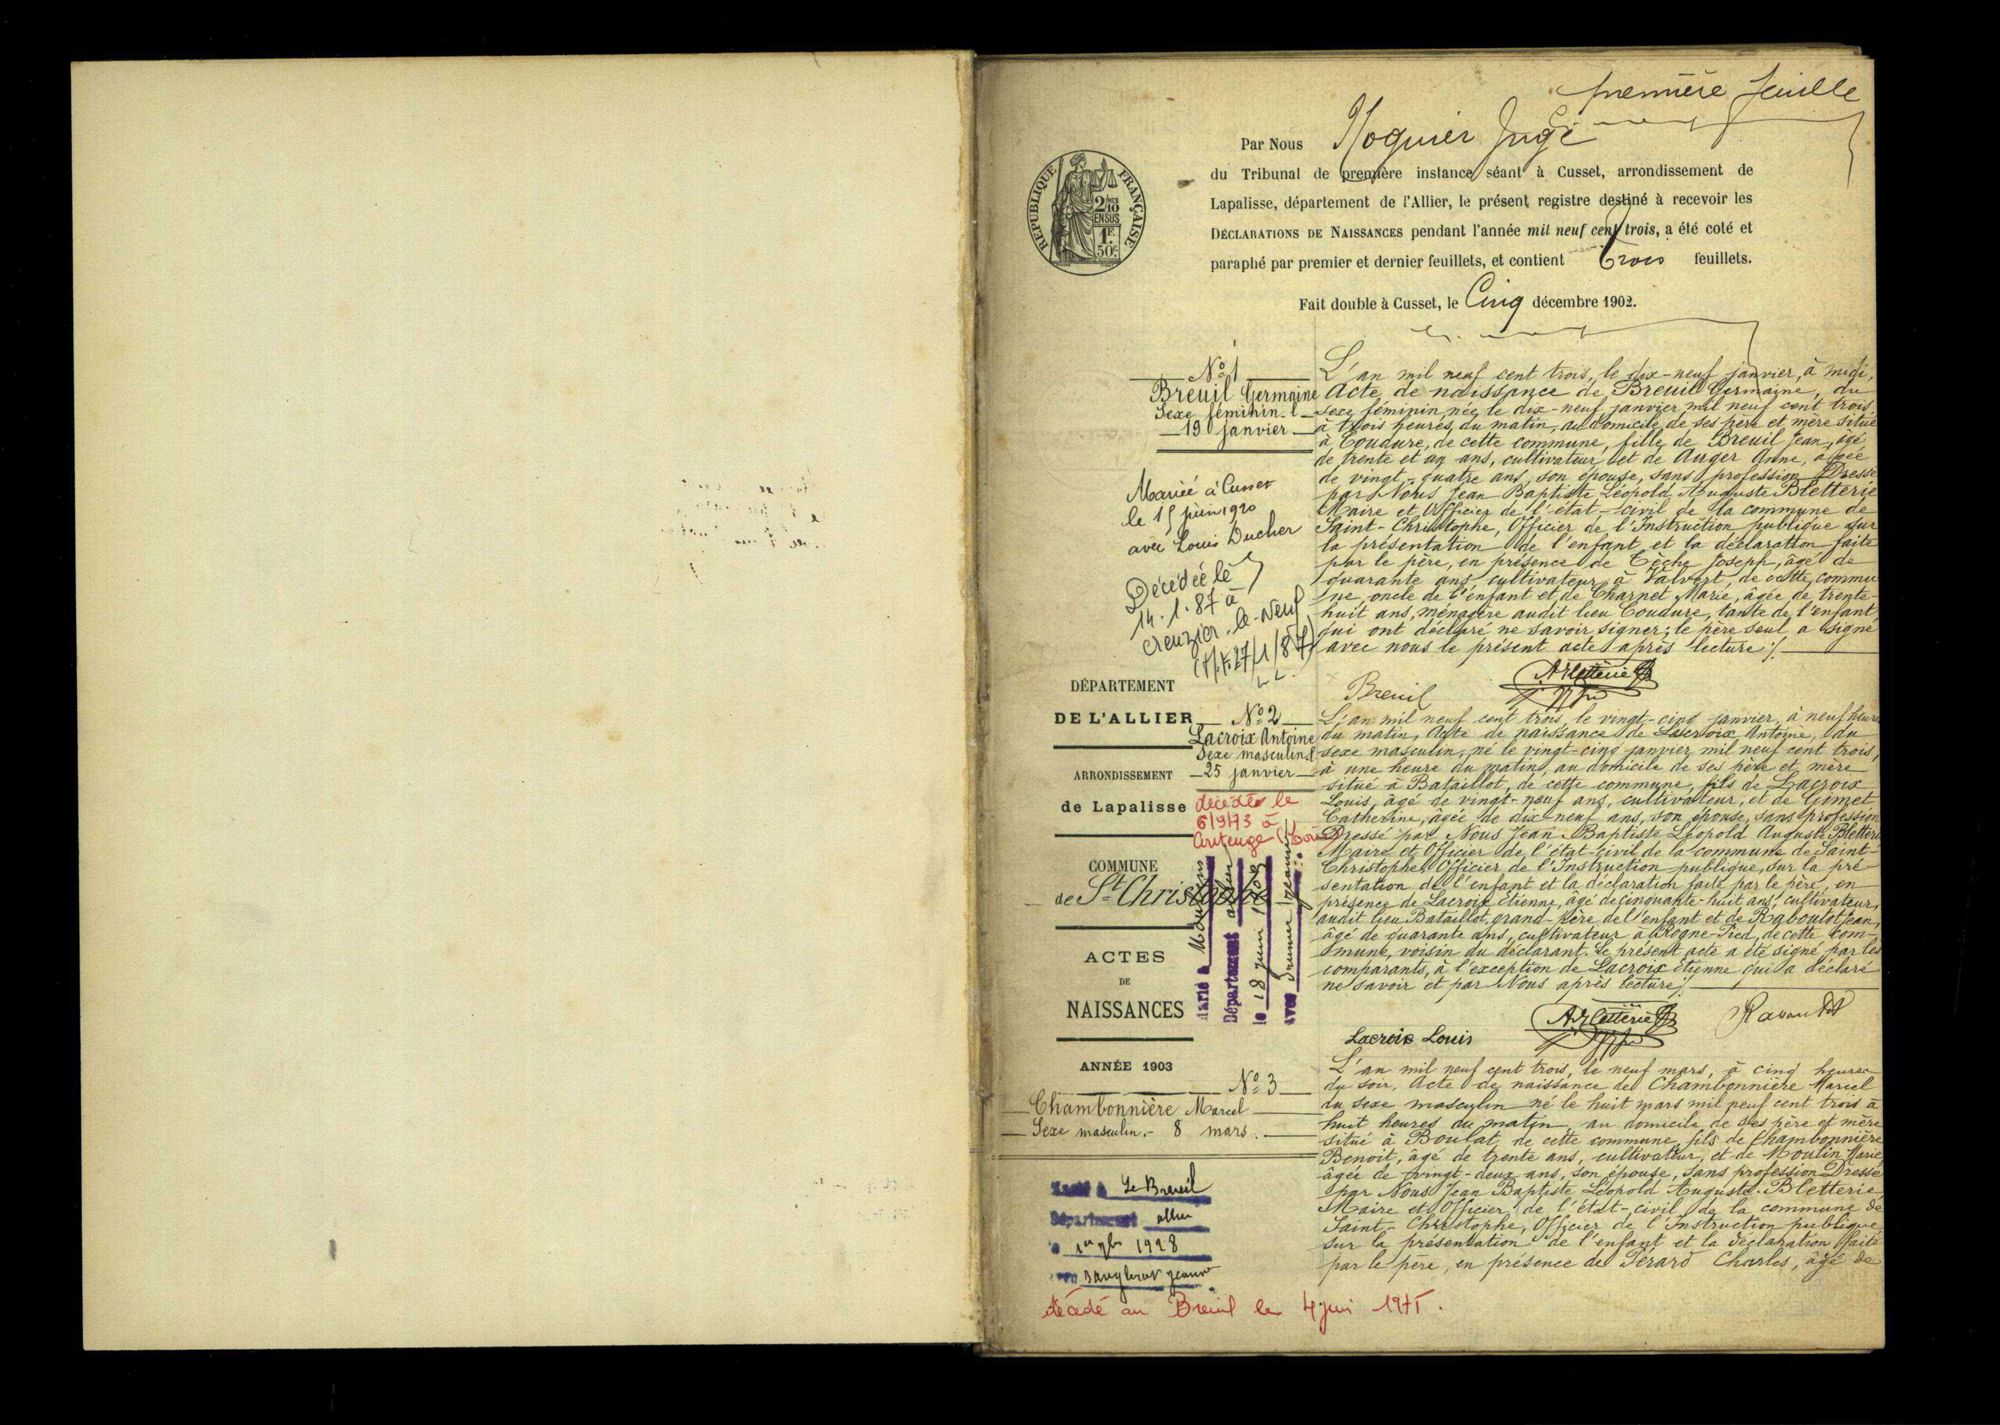 première feuille
Par Nous Noguier Juge
du Tribunal de première instance séant à Cusset, arrondissement de
Lapalisse, département de l'Allier, le présent registre destiné à recevoir les
DÉCLARATIONS DE NAISSANCES pendant l'année mil neuf cent trois, a été coté et
paraphé par premier et dernier feuillets, et contient Trois feuillets.
Fait double à Cusset, le Cinq décembre 1902.
RÉPUBLIQUE FRANÇAISE
2/10
EN SUS
1F.
50c.
N° 1
Breuil Germaine
Sexe féminin
19 janvier
Mariée à Cusset
le 15 juin 1920
avec Louis Ducher
Décédée le
14.1.87 à
Creuzier-le-Neuf
27/1/87
L'an mil neuf cent trois, le dix-neuf janvier, à midi,
Acte de naissance de Breuil Germaine, du
sexe féminin, née le dix-neuf janvier mil neuf cent trois,
à trois heures du matin, au domicile de ses père et mère situé
à Coudure, de cette commune, fille de Breuil Jean, âgé
de trente et un ans, cultivateur, et de Auger Anne, âgée
de vingt-quatre ans, son épouse, sans profession. Dressé
par Nous Jean Baptiste Léopold Auguste Bletterie
Maire et Officier de l'état-civil de la commune de
Saint-Christophe, Officier de l'Instruction publique sur
la présentation de l'enfant et la déclaration faite
par le père, en présence de Tèche Joseph, âgé de
quarante ans, cultivateur à Valvert, de cette commu-
ne, oncle de l'enfant et de Charnet Marie, âgée de trente-
huit ans, ménagère audit lieu Coudure, tante de l'enfant,
qui ont déclaré ne savoir signer; le père seul a signé
avec nous le présent acte après lecture ./.
Breuil
A. Bletterie
DÉPARTEMENT
DE L'ALLIER
ARRONDISSEMENT
de Lapalisse
COMMUNE
de St-Christophe
ACTES
DE
NAISSANCES
ANNÉE 1903
N° 2
Lacroix Antoine
Sexe masculin
25 janvier
décédé le
6/9/73 à
Marié à
Département
le 18 juin
avec
L'an mil neuf cent trois, le vingt-cinq janvier, à neuf heures
du matin, Acte de naissance de Lacroix Antoine, du
sexe masculin, né le vingt-cinq janvier mil neuf cent trois,
à une heure du matin, au domicile de ses père et mère
situé à Bataillot, de cette commune, fils de Lacroix
Louis, âgé de vingt-neuf ans, cultivateur, et de Gimet
Catherine, âgée de dix-neuf ans, son épouse, sans profession
Dressé par Nous Jean Baptiste Léopold Auguste Bletterie
Maire et Officier de l'état-civil de la commune de Saint-
Christophe, Officier de l'Instruction publique, sur la pré-
sentation de l'enfant et la déclaration faite par le père, en
présence de Lacroix Etienne, âgé de cinquante-huit ans, cultivateur,
audit lieu Bataillot, grand-père de l'enfant et de Raboulot Jean,
âgé de quarante ans, cultivateur à Rogne-Pied, de cette com-
mune, voisin du déclarant. Le présent acte a été signé par les
comparants, à l'exception de Lacroix Etienne qui a déclaré
ne savoir et par Nous après lecture ./.
Lacroix Louis
A. Bletterie
N° 3
Chambonnière Marcel
Sexe masculin. - 8 mars.
Marié à Le Breuil
Département Allier
1928
décédé au Breuil le 4 juin 1975.
L'an mil neuf cent trois, le neuf mars, à cinq heures
du soir, Acte de naissance de Chambonnière Marcel
du sexe masculin né le huit mars mil neuf cent trois à
huit heures du matin, au domicile de ses père et mère
situé à Boulat, de cette commune, fils de Chambonnière
Benoit, âgé de trente ans, cultivateur, et de Moulin Marie
âgée de vingt-deux ans, son épouse, sans profession Dressé
par Nous Jean Baptiste Léopold Auguste Bletterie,
Maire et Officier de l'état-civil de la commune de
Saint-Christophe, Officier de l'Instruction publique,
sur la présentation de l'enfant et la déclaration faite
par le père, en présence de Férard Charles, âgé de